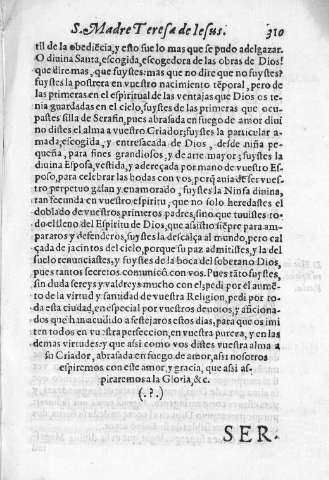 S. Madre Teresa de Iesus. 310
til de la obediẽcia, y esto fue lo mas que se pudo adelgazar.
O diuina Santa, escogida, escogedora de las obras de Dios!
que dire mas, que fuystes: mas que no dire que no fuystes?
fuystes la postrera en vuestro nacimiento tẽporal, pero de
las primeras en el espiritual de las ventajas que Dios os te
nia guardadas en el cielo, fuystes de las primeras que ocu-
pastes silla de Serafin, pues abrasada en fuego de amor diui
no distes el alma a vuestro Criador; fuystes la particular a-
mada, escogida, y entresacada de Dios, desde niña pe-
queña, para fines grandiosos, y de arte mayor; fuystes la
diuina Esposa, vestida, y adereçada por mano de vuestro Es-
poso, para celebrar las bodas con vos, porq̃ auia de ser vues-
tro perpetuo galan y enamorado, fuystes la Ninfa diuina,
tan fecunda en vuestro espiritu, que no solo heredastes el
doblado de vuestros primeros padres, sino que tuuistes to-
do el lleno del Espiritu de Dios, que assistio siẽpre para am-
pararos y defenderos, fuystes la descalça al mundo, pero cal
çada de jacintos del cielo, porque su paz admitistes, y la del
suelo renunciastes, y fuystes de la boca del soberano Dios,
pues tantos secretos comunicò con vos. Pues tãto fuystes,
sin duda sereys y valdreys mucho con el; pedi por el aumẽ-
to de la virtud y santidad de vuestra Religion, pedi por to-
da esta ciudad, en especial por vuestros deuotos, y aficiona-
dos que han acudido a festejaros estos dias, para que os imi
ten todos en vuestra perfeccion, en vuestra pureza, y en las
demas virtudes: y que assi como vos distes vuestra alma a
su Criador, abrasada en fuego de amor, assi nosotros
espiremos con este amor, y gracia, que assi as-
piraremos a la Gloria, &c.
(.?.)
SER-